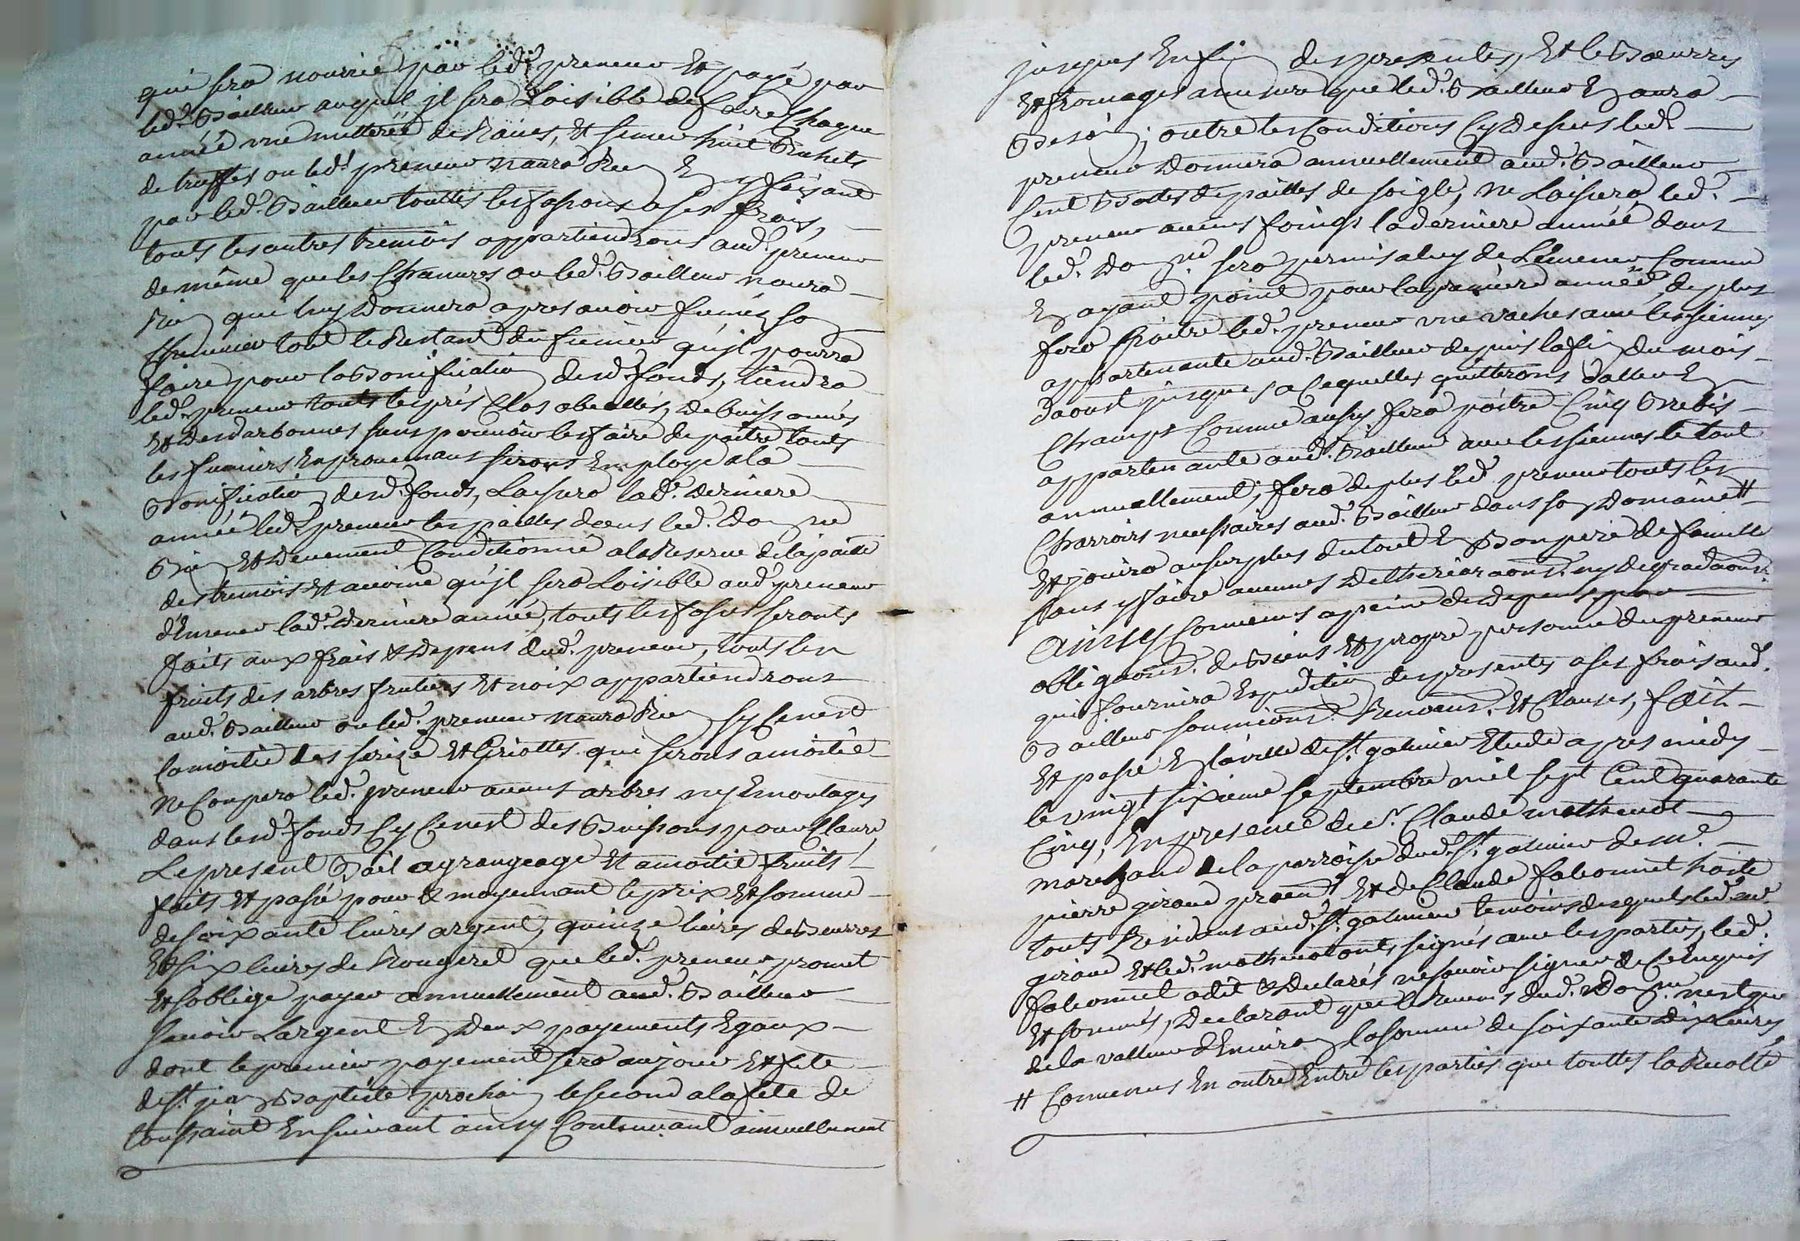 qui sera nourrie par led. preneur Et payé par
led. Bailleur auquel jl sera Loisible de faire Chaque
année une metterée de Raves, Et semer huit Bichets
de truffes ou led. preneur naura Rien En y faisant
par led. Bailleur touttes les fasons a ses frais,
touts les autres tremois appartiendront aud. preneur
de même que les Chanvres ou led. Bailleur naura
Rien qui luy Donnera apres avoir fumés son
Chenevier tout le Restant du fumier qu'jl pourra
faire pour la Bonification desd. fonds, tiendra
led. preneur touts les prés Clos abeallés, debuissonnés
Et desdarbonnés sans pouvoir les faire depaitre touts
les fumiers En provenants seronts Employé a la
Bonification desd. fonds, Laissera lad. derniere
année led. preneur les pailles dans led. Domne
Bien Et Deuement Conditionné a la Reserve de la paille
des tremois Et avoine qu'jl sera Loisible aud. preneur
d'Emener lad. derniere année, touts les fasons seronts
faits aux frais & depens dud. preneur, touts les
fruits des arbres frutiers Et noix appartiendront
aud. Bailleur ou led. preneur naura Rien sy Cenest
la moitié des serize Et Griottes qui seront a moitié
Ne Coupera led. preneur aucuns arbres ny Emontages
dans lesd. fonds sy Cenest des Buissons pour Claure,
Le present Bail a grangeage Et a moitié fruits
faits Et passé pour & moyennant le prix Et somme
de soixante livres argent, quinze livres de Beurres
Et six livres de Rougeret que led. preneur promet
Et soblige payer annuellement aud. Bailleur
savoir Largent En Deux payements Egaux
dont le premier payement sera au jour Et fete
de St. jean Baptiste prochain le second a la fete de
toussaint Ensuivant ainsy Continuant annuellement
jusques En fin des presentes, Et le Bœurres
Et fromages a mesure que led. Bailleur En aura
Besoin; outre les Conditions Cy Dessus led.
preneur Donnera annuellement aud. Bailleur
Cent Bottes de pailles de soigle, Ne Laissera led.
preneur aucuns foings la derniere année dans
led. Domne sera permis a luy de L'emener Comme
En ayant point pour la premiere année de plus
fera paitre led. preneur une vache avec les siennes
appartenante aud. Bailleur depuis la fin du mois
Daoust jusques a Laquelles quitterons d'aller En
Champs Comme aussy fera paitre Cinq Brebis
appartenante aud. Bailleur avec les siennes le tout
annuellement, fera de plus led. preneur touts les
Charroirs necessaires aud. Bailleur dans son Domaine #
Et jouira au surplus du tout En Bon pere de famille
sans y faire aucunes Detheriora{ons} ny degrada{ons}
Ainsy Convenus a peine de depens par
obliga{ons} de Biens Et propre personne du preneur
qui fournira Expedition des presentes a ses frais aud.
Bailleur soumi{ons} Renon{ons} Et Clauses, fait
Et passé En la ville de St. galmier Etude apres midy
le vingt sixieme septembre mil sept Cent quarante
Cinq, En presence de sr. Claude mothenot
marchand de la parroisse dud. St. galmier de me.
pierre giraud praen. Et de Claude fabonnet hoste
touts Residant aud. St. galmier temoins desquels led. me.
giraud Et led. mothenot onts signés avec les parties, led.
fabonnet a dit & Declarés ne savoir signer de Ce Enquis
Et sommés, Declarant que le Revenus dud. Domne nest que
de la valleur d'Environ la somme de soixante dix livres,
# Convenus En outre Entre les parties que touttes la Recolte